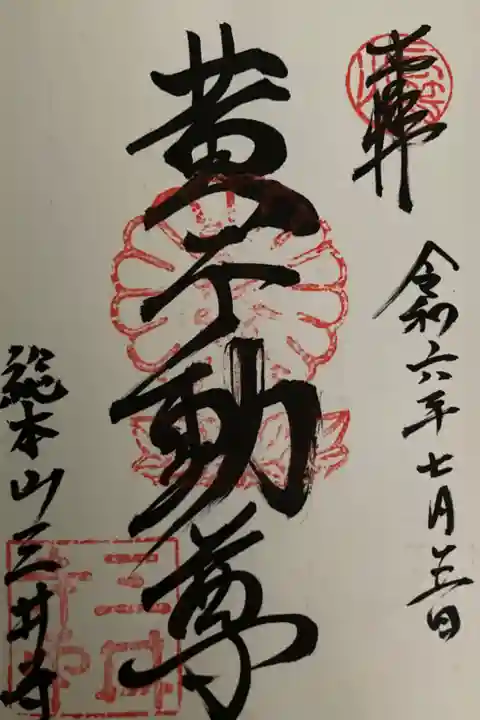 奉拝
令和六年七月廿三日
黄不動尊
総本山三井寺